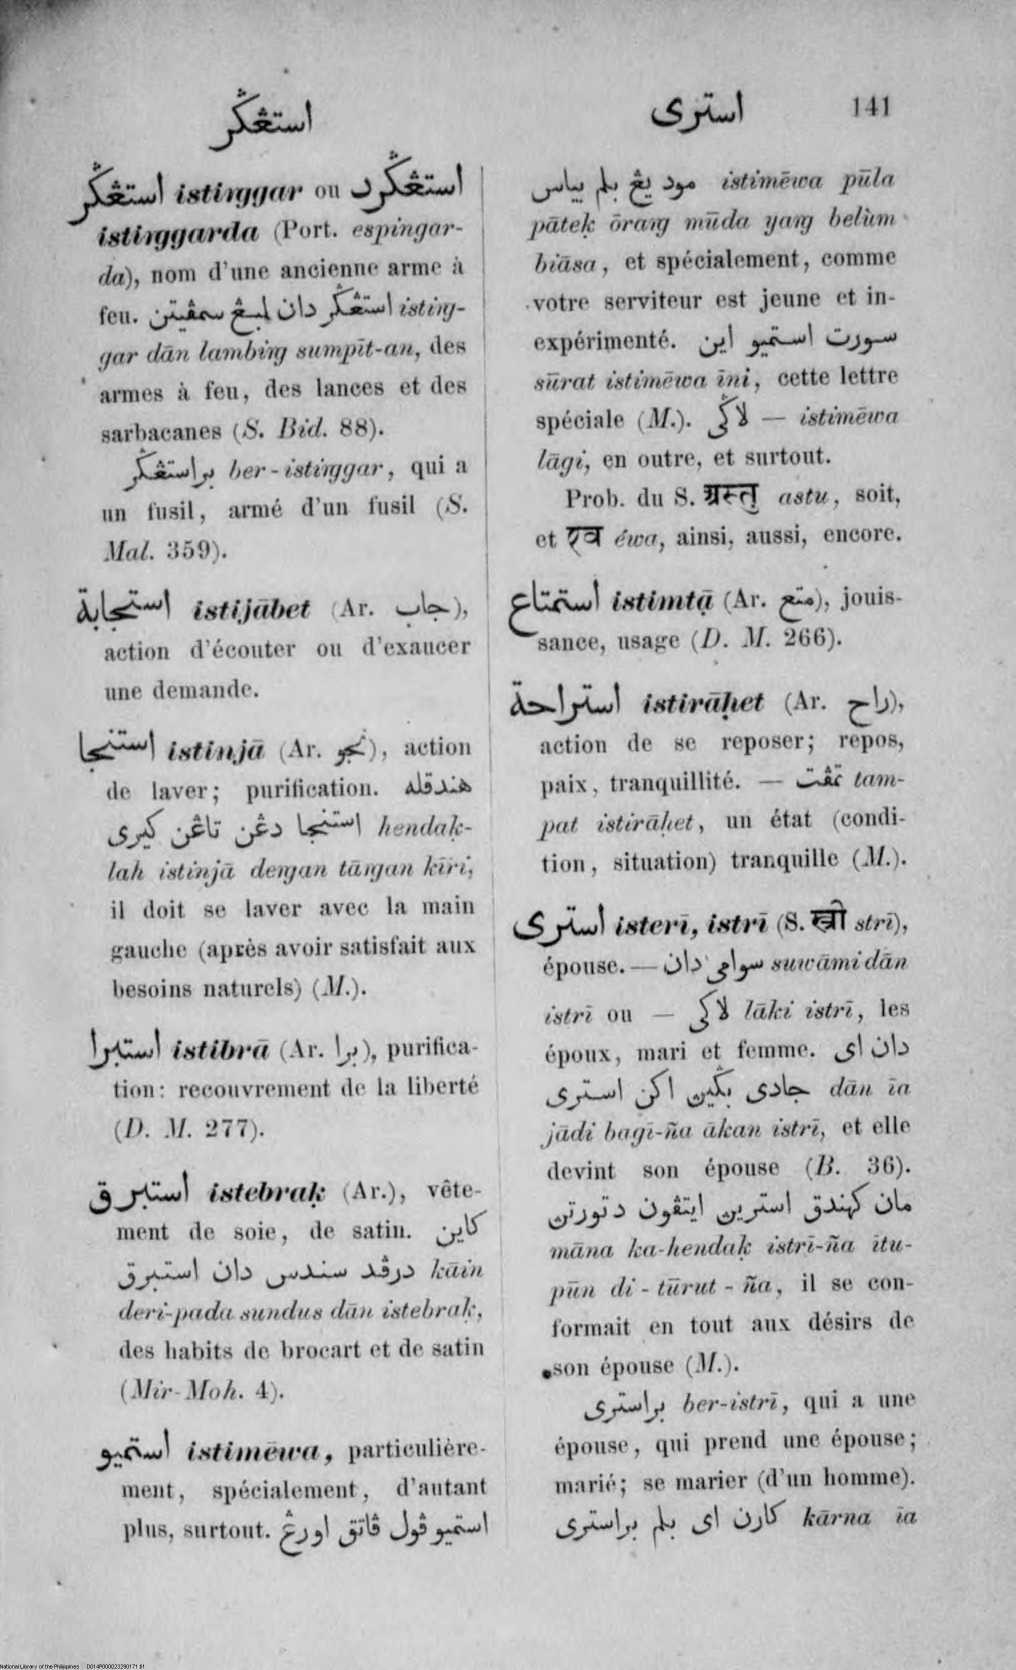 استڠݢر
استرى
141
استڠݢر istiṅggar ou استڠݢرد
istiṅggarda (Port. espingar-
da), nom d'une ancienne arme à
feu. استڠݢر دان لمبڠ سمڤيتن istiṅg-
gar dān lambiṅg sumpīt-an, des
armes à feu, des lances et des
sarbacanes (S. Bid. 88).
براستڠݢر ber-istiṅggar, qui a
un fusil, armé d'un fusil (S.
Mal. 359).
استجابة istijābet (Ar. جاب),
action d'écouter ou d'exaucer
une demande.
استنجا istinjā (Ar. نجو), action
de laver; purification. هندقله
استنجا دڠن تاڠن كيرى hendaḳ-
lah istinjā deṅgan tāṅgan kīri,
il doit se laver avec la main
gauche (après avoir satisfait aux
besoins naturels) (M.).
استبرا istibrā (Ar. برا), purifica-
tion: recouvrement de la liberté
(D. M. 277).
استبرق istebraḳ (Ar.), vête-
ment de soie, de satin. كاين
درڤد سندس دان استبرق kāin
deri-pada sundus dān istebraḳ,
des habits de brocart et de satin
(Mir-Moh. 4).
استميو istimēwa, particulière-
ment, spécialement, d'autant
plus, surtout. استميو ڤول ڤاتق اورڠ
مود يڠ بلم بياس istimēwa pūla
pāteḳ ōraṅg mūda yaṅg belùm
biāsa, et spécialement, comme
votre serviteur est jeune et in-
expérimenté. سورت استميو اين
sūrat istimēwa īni, cette lettre
spéciale (M.). لاݢى — istimēwa
lāgi, en outre, et surtout.
Prob. du S. अस्तु astu, soit,
et एव éwa, ainsi, aussi, encore.
استمتاع istimtạ̄ (Ar. متع), jouis-
sance, usage (D. M. 266).
استراحة istirāḥet (Ar. راح),
action de se reposer; repos,
paix, tranquillité. — تمڤت tam-
pat istirāḥet, un état (condi-
tion, situation) tranquille (M.).
استرى isterī, istrī (S. स्त्री strī),
épouse. — سوامى دان suwāmi dān
istrī ou — لاكى lāki istrī, les
époux, mari et femme. دان اى
جادى بݢين اكن استرى dān īa
jādi bagī-ña ākan istrī, et elle
devint son épouse (B. 36).
مان كهندق استرين ايتڤون دتورتن
māna ka-hendaḳ istrī-ña ītu-
pūn di-tūrut-ña, il se con-
formait en tout aux désirs de
son épouse (M.).
براسترى ber-istrī, qui a une
épouse, qui prend une épouse;
marié; se marier (d'un homme).
كارن اى بلم براسترى kārna īa
National Library of the Philippines